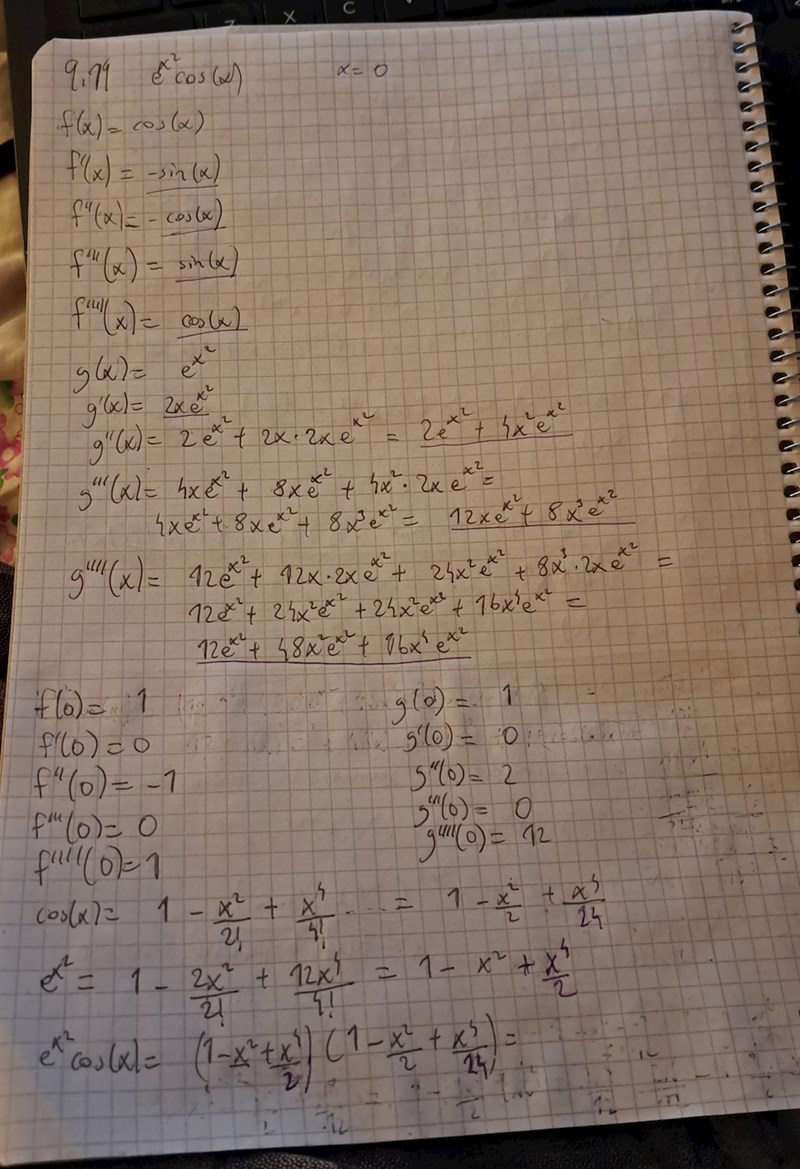 9.19 e^{x^2} cos(x) x = 0
f(x) = cos(x)
f'(x) = -sin(x)
f''(x) = -cos(x)
f'''(x) = sin(x)
f''''(x) = cos(x)
g(x) = e^{x^2}
g'(x) = 2xe^{x^2}
g''(x) = 2e^{x^2} + 2x·2xe^{x^2} = 2e^{x^2} + 4x^2e^{x^2}
g'''(x) = 4xe^{x^2} + 8xe^{x^2} + 4x^2·2xe^{x^2} =
4xe^{x^2} + 8xe^{x^2} + 8x^3e^{x^2} = 12xe^{x^2} + 8x^3e^{x^2}
g''''(x) = 12e^{x^2} + 12x·2xe^{x^2} + 24x^2e^{x^2} + 8x^3·2xe^{x^2} =
12e^{x^2} + 24x^2e^{x^2} + 24x^2e^{x^2} + 16x^4e^{x^2} =
12e^{x^2} + 48x^2e^{x^2} + 16x^4e^{x^2}
f(0) = 1 g(0) = 1
f'(0) = 0 g'(0) = 0
f''(0) = -1 g''(0) = 2
f'''(0) = 0 g'''(0) = 0
f''''(0) = 1 g''''(0) = 12
cos(x) = 1 - x^2/2! + x^4/4! ... = 1 - x^2/2 + x^4/24
e^{x^2} = 1 - 2x^2/2! + 12x^4/4! = 1 - x^2 + x^4/2
e^{x^2} cos(x) = (1 - x^2 + x^4/2) (1 - x^2/2 + x^4/24) =